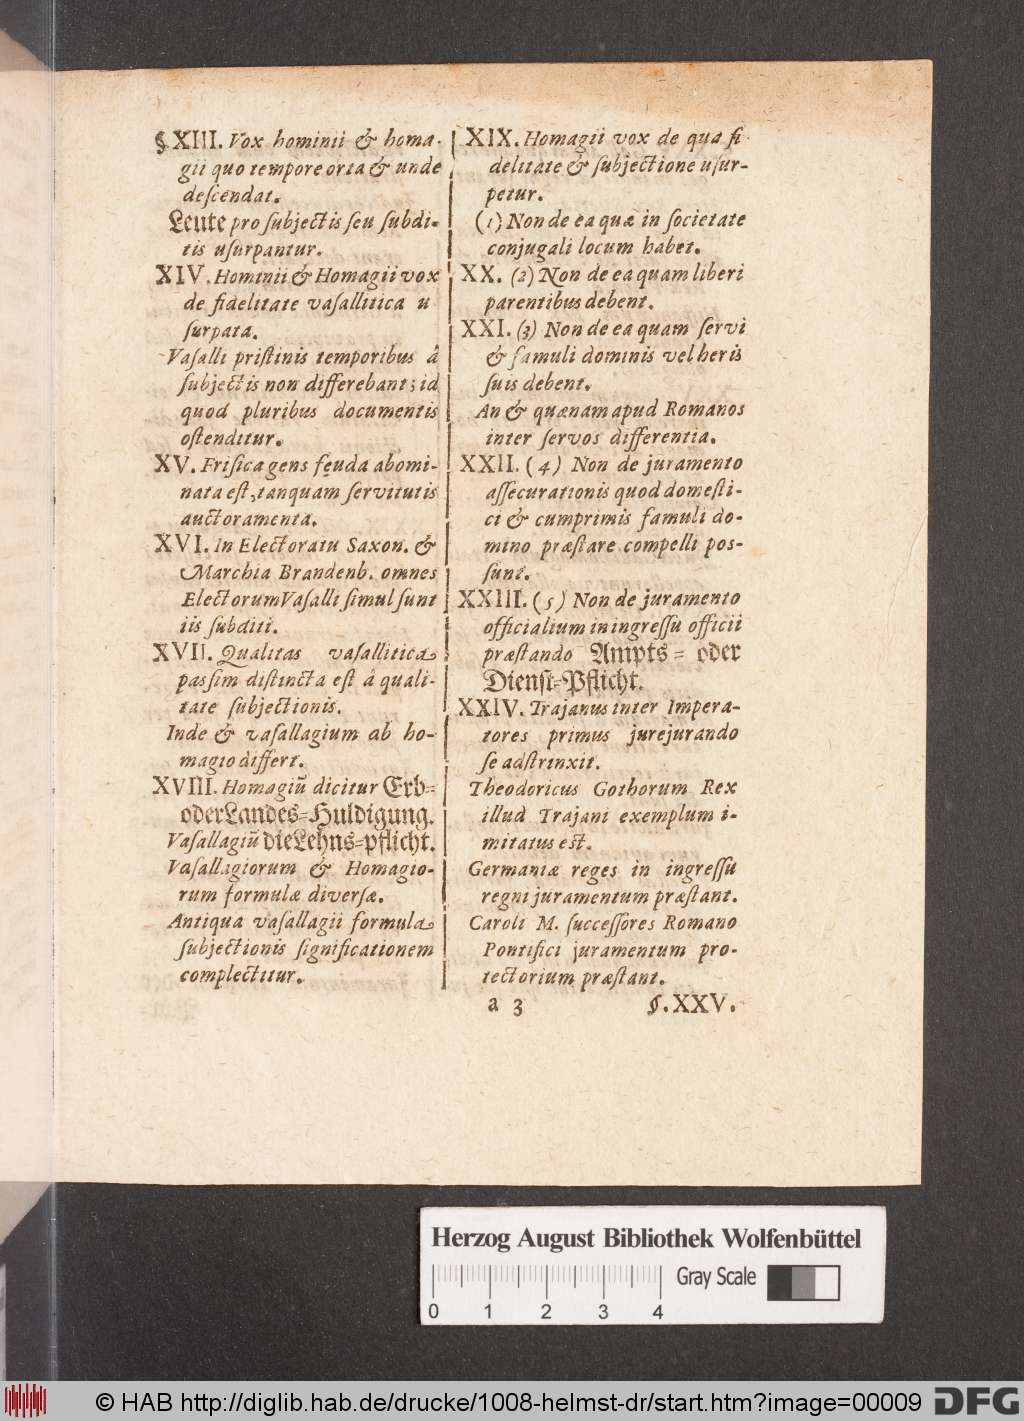 §. XIII. Vox hominii & homa-
gii quo tempore orta & unde
descendat.
Leute pro subjectis seu subdi-
tis usurpantur.
XIV. Hominii & Homagii vox
de fidelitate vasallitica u
surpata.
Vasalli pristinis temporibus â
subjectis non differebant; id
quod pluribus documentis
ostenditur.
XV. Frisica gens feuda abomi-
nata est, tanquam servitutis
auctoramenta.
XVI. In Electoratu Saxon. &
Marchia Brandenb. omnes
Electorum Vasalli simul sunt
iis subditi.
XVII. Qualitas vasallitica
passim distincta est â quali-
tate subjectionis.
Inde & vasallagium ab ho-
magio differt.
XVIII. Homagiũ dicitur Erb-
oder Landes-Huldigung.
Vasallagiũ die Lehns-pflicht.
Vasallagiorum & Homagio-
rum formulæ diversæ.
Antiqua vasallagii formula
subjectionis significationem
complectitur.
XIX. Homagii vox de qua fi
delitate & subjectione usur-
petur.
(1) Non de ea quæ in societate
conjugali locum habet.
XX. (2) Non de ea quam liberi
parentibus debent.
XXI. (3) Non de ea quam servi
& famuli dominis vel heris
suis debent.
An & quænam apud Romanos
inter servos differentia.
XXII. (4) Non de juramento
assecurationis quod domesti-
ci & cumprimis famuli do-
mino præstare compelli pos-
sunt.
XXIII. (5) Non de juramento
officialium in ingressu officii
præstando Ampts- oder
Dienst-Pflicht.
XXIV. Trajanus inter Impera-
tores primus jurejurando
se adstrinxit.
Theodoricus Gothorum Rex
illud Trajani exemplum i-
mitatus est.
Germaniæ reges in ingressu
regni juramentum præstant.
Caroli M. successores Romano
Pontifici juramentum pro-
tectorium præstant.
a 3 §. XXV.
Herzog August Bibliothek Wolfenbüttel
Gray Scale
0 1 2 3 4
© HAB http://diglib.hab.de/drucke/1008-helmst-dr/start.htm?image=00009
DFG